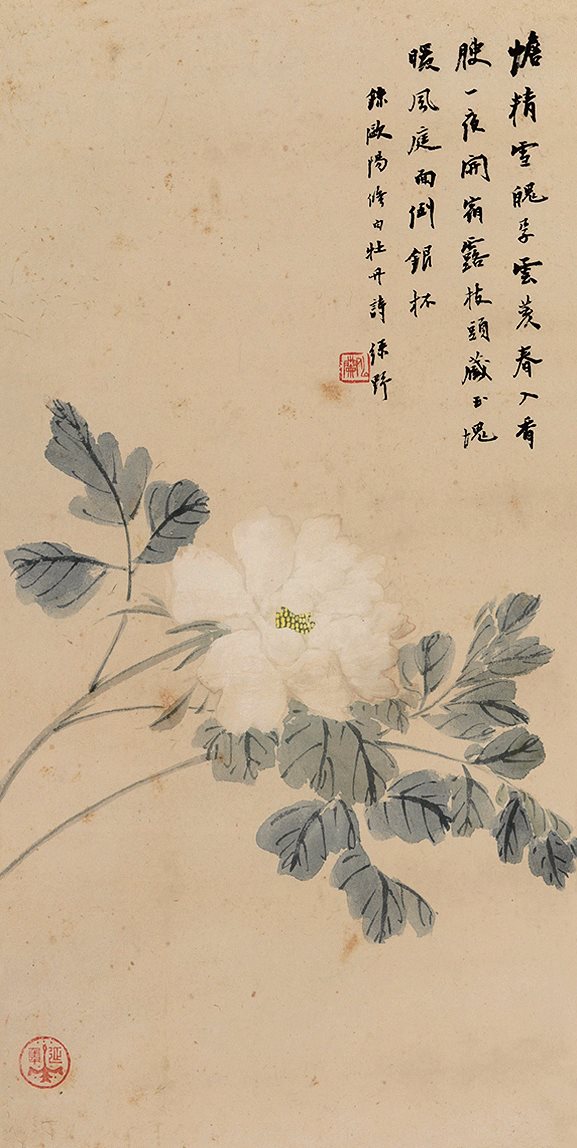 蟾精雪魄孕雲荄春入香
腴一夜開宿露枝頭藏玉塊
暖風庭面倒銀杯
錄歐陽修白牡丹詩 野